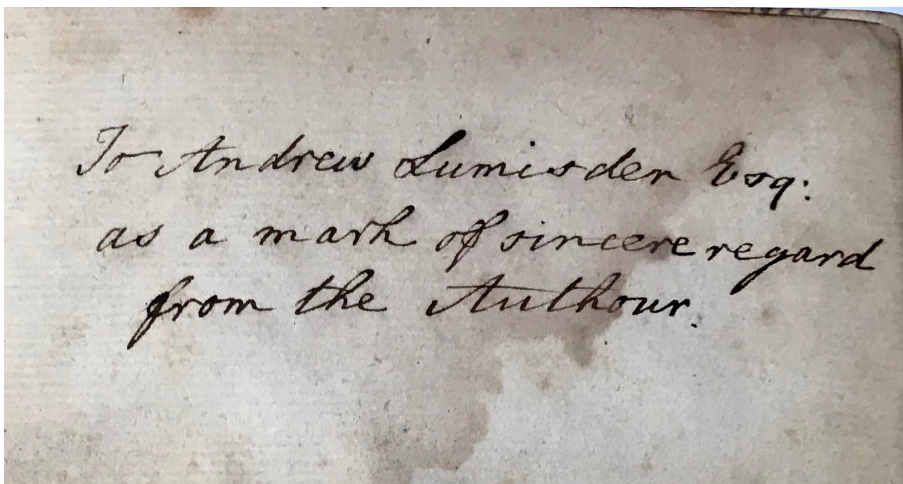 To Andrew Lumisden Esq:
as a mark of sincere regard
from the Authour.